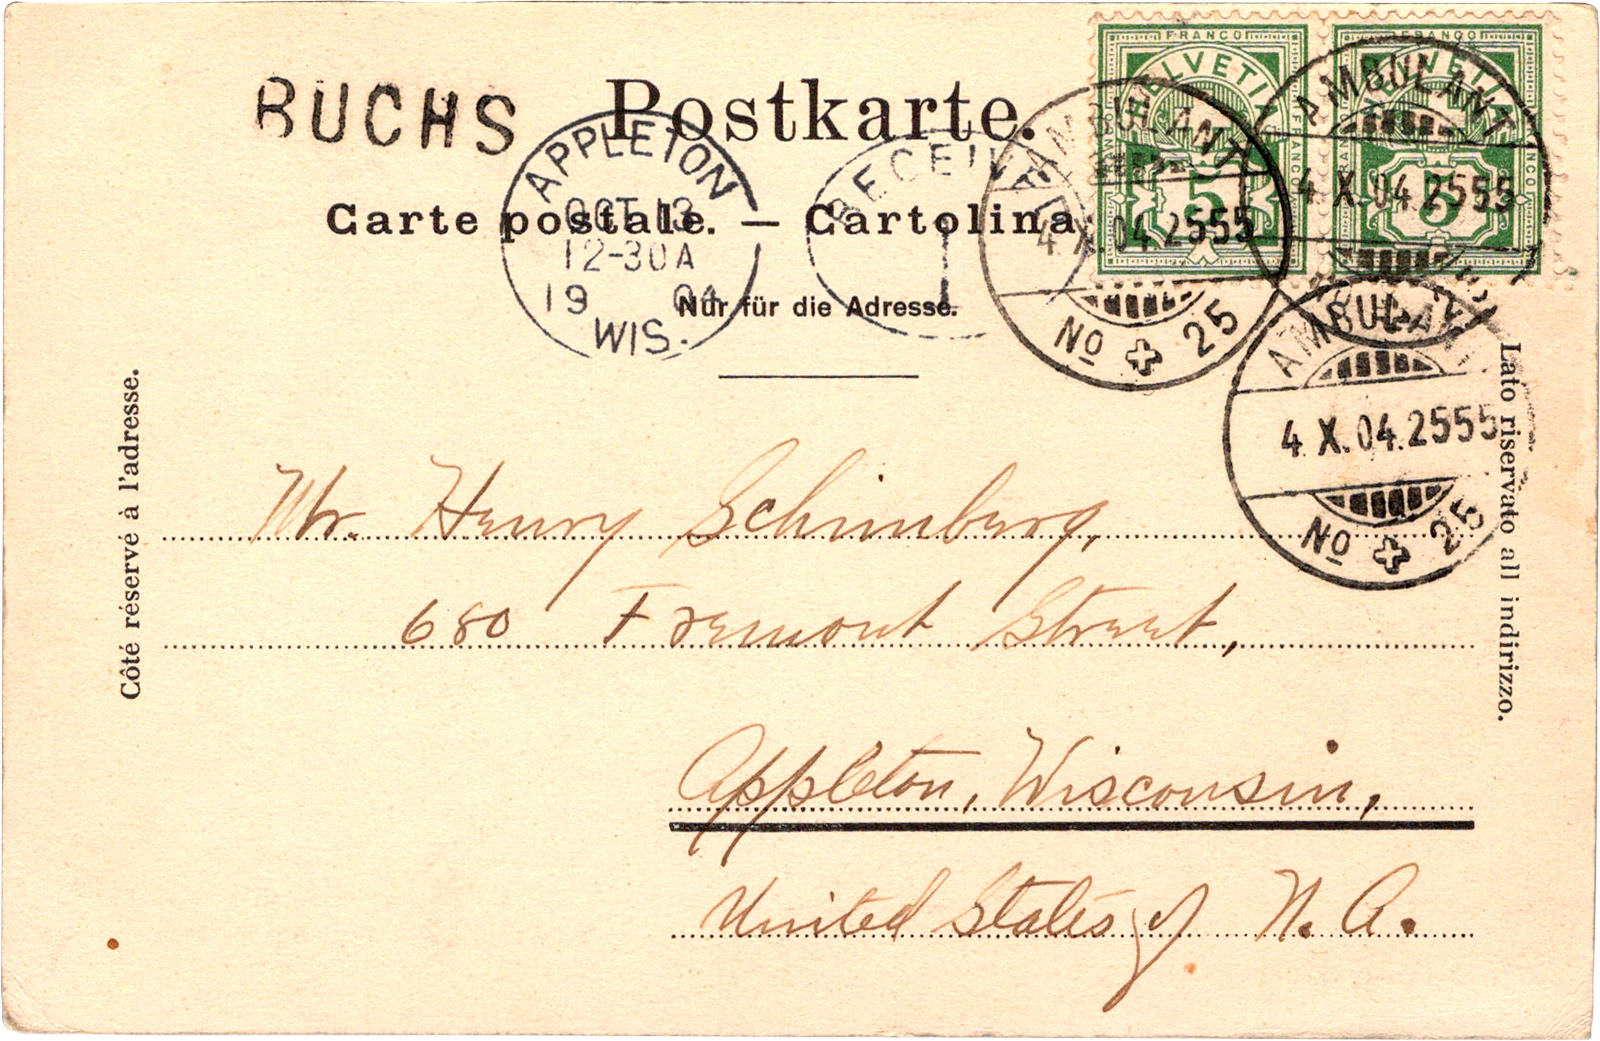 FRANCO
FRANCO
HELVETIA
HELVETIA
FRANCO
FRANCO
5
5
BUCHS
Postkarte.
Carte postale. — Cartolina
Nur für die Adresse.
APPLETON
OCT 13
12-30A
1904
WIS.
RECEIVED
1
AMBULANT
4 X.04.2555
No 25
AMBULANT
4 X.04.2555
AMBULANT
4 X.04.2555
No 25
Côté réservé à l'adresse.
Lato riservato all indirizzo.
Mr. Henry Schimberg,
680 Fremont Street,
Appleton, Wisconsin,
United States of N. A.